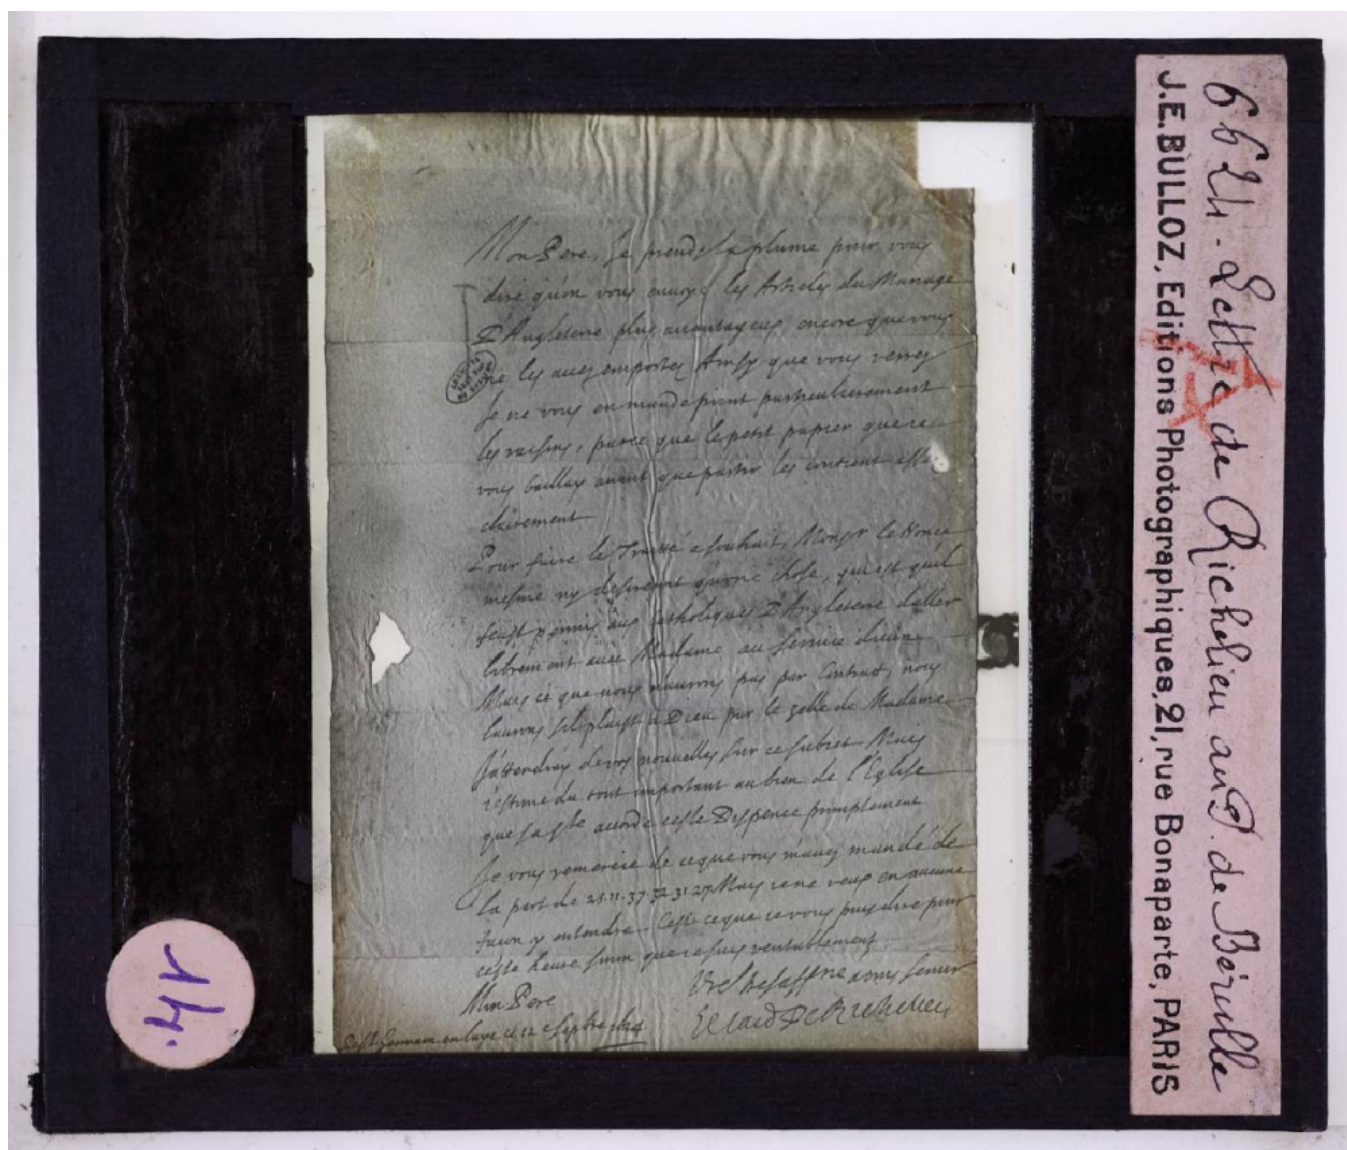 Mon Pere, Je prends la plume pour vous
dire qu'on vous envoye les Articles du Mariage
D'Angleterre plus avantageux encore que vous
ne les avez emportez Ainsy que vous verrez
Je ne vous en mande point particulierement
les raisons, parce que le petit papier que ie
vous baillay avant que partir les contient assez
clairement
Pour faire le Traitté a souhait, Monsr le Nonce
mesme ny desireroit qu'une chose, qui est quil
feust permis aux Catholiques D'Angleterre d'aller
librement avec Madame au service divin
Mais ce que nous n'aurons pas par Contract, nous
l'aurons sil plaist a Dieu par le zelle de Madame
J'attendray de vos nouvelles sur ce subiect Mais
i'estime du tout important au bien de l'Eglise
que sa Ste accorde ceste Dispence promptement
Je vous remercie de ce que vous m'avez mandé de
la part de 21.11.37.32.31.27. Mais ie ne veux en aucune
facon y entendre. C'est ce que ie vous puis dire pour
ceste heure sinon que ie suis veritablement
Mon Pere
Vre tres affnné a vous servir
Le Card De Richelieu
De St Germain en laye ce 12e Septbre 1624
6624. Lettre de Richelieu au P. de Bérulle
J.E. BULLOZ, Editions Photographiques, 21, rue Bonaparte, PARIS
14.